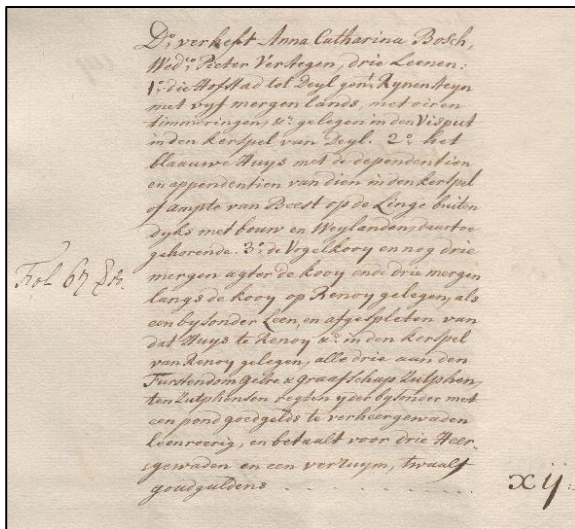 Do. verheft Anna Catharina Bosch,
Wede. Pieter Verstegen, drie Leenen:
1o. die Hofstad tot Deyl gent. Rynensteyn
met vyf mergen lands, met eiren
timmeringen, &c. gelegen in den Visput
in den kerspel van Deyl. 2o. het
blaauwe Huys met de dependentien
en appendentien van dien in den kerspel
of ampte van Beest op de Linge buiten
dyks met bouw en Weylanden, daartoe
gehorende. 3o. de Vogelkooy en nog drie
mergen agter de kooy ende drie mergen
Fol. 67
langs de kooy op Renoy gelegen, als
een bysonder Leen, en afgespleten van
dat Huys te Renoy &c. in den kerspel
van Renoy gelegen, alle drie aan den
Furstendom Gelre & Graafschap Zutphen,
ten Zutphensen regten yder bysonder met
een pond goedgelds te verheergewaden
leenroerig, en betaalt voor drie Heer-
gewaden en een verzuym, twaalf
goudguldens xij: